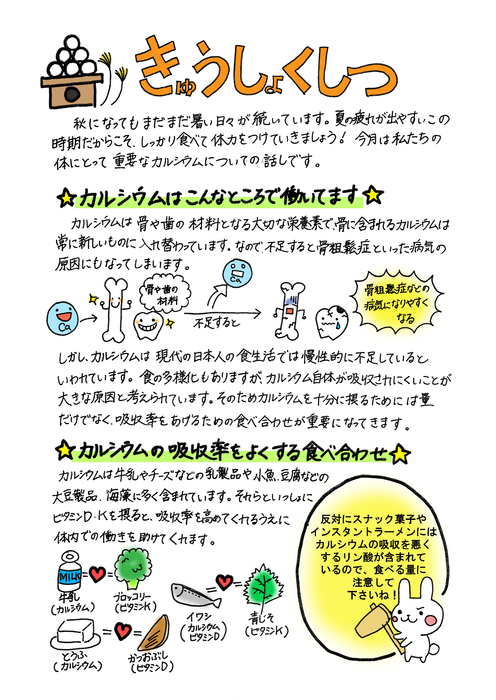 きゅうしょくしつ
秋になってもまだまだ暑い日々が続いています。夏の疲れが出やすいこの
時期だからこそ、しっかり食べて体力をつけていきましょう！今月は私たちの
体にとって重要なカルシウムについての話しです。
カルシウムはこんなところで働いてます
カルシウムは骨や歯の材料となる大切な栄養素で、骨に含まれるカルシウムは
常に新しいものに入れ替わっています。なので、不足すると骨粗鬆症といった病気の
原因にもなってしまいます。
骨や歯の
材料
Ca
不足すると
Ca
骨粗鬆症などの
病気になりやすく
なる
しかし、カルシウムは現代の日本人の食生活では慢性的に不足していると
いわれています。食の多様化もありますが、カルシウム自体が吸収されにくいことが
大きな原因と考えられています。そのためカルシウムを十分に摂るためには量
だけでなく、吸収率をあげるための食べ合わせが重要になってきます。
カルシウムの吸収率をよくする食べ合わせ
カルシウムは牛乳やチーズなどの乳製品や小魚、豆腐などの
大豆製品、海藻に多く含まれています。それらといっしょに
ビタミンD・Kを摂ると、吸収率を高めてくれるうえに
体内での働きを助けてくれます。
MILK
牛乳
(カルシウム)
ブロッコリー
(ビタミンK)
イワシ
(カルシウム
ビタミンD)
青じそ
(ビタミンK)
とうふ
(カルシウム)
かつおぶし
(ビタミンD)
反対にスナック菓子や
インスタントラーメンには
カルシウムの吸収を悪く
するリン酸が含まれて
いるので、食べる量に
注意して
下さいね！